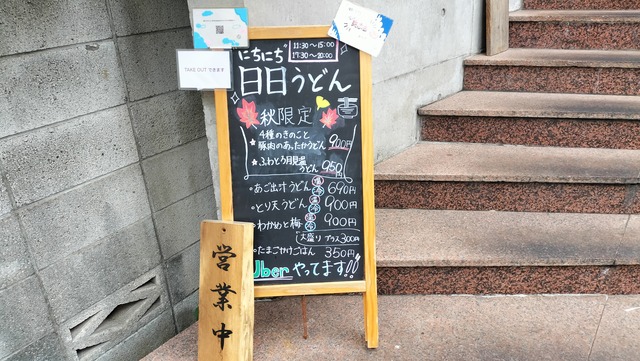 TAKE OUT できます
11:30〜15:00
17:30〜20:00
にちにち
日日うどん
秋限定
★4種のきのこと
豚肉のあったかうどん 900円
★ふわとろ月見塩
うどん 950円
・あご出汁うどん 温 冷 690円
・とり天うどん 温 冷 900円
・わかめと梅 温 冷 900円
大盛り プラス300円
・たまごかけごはん 350円
Uber やってます!!
営業中